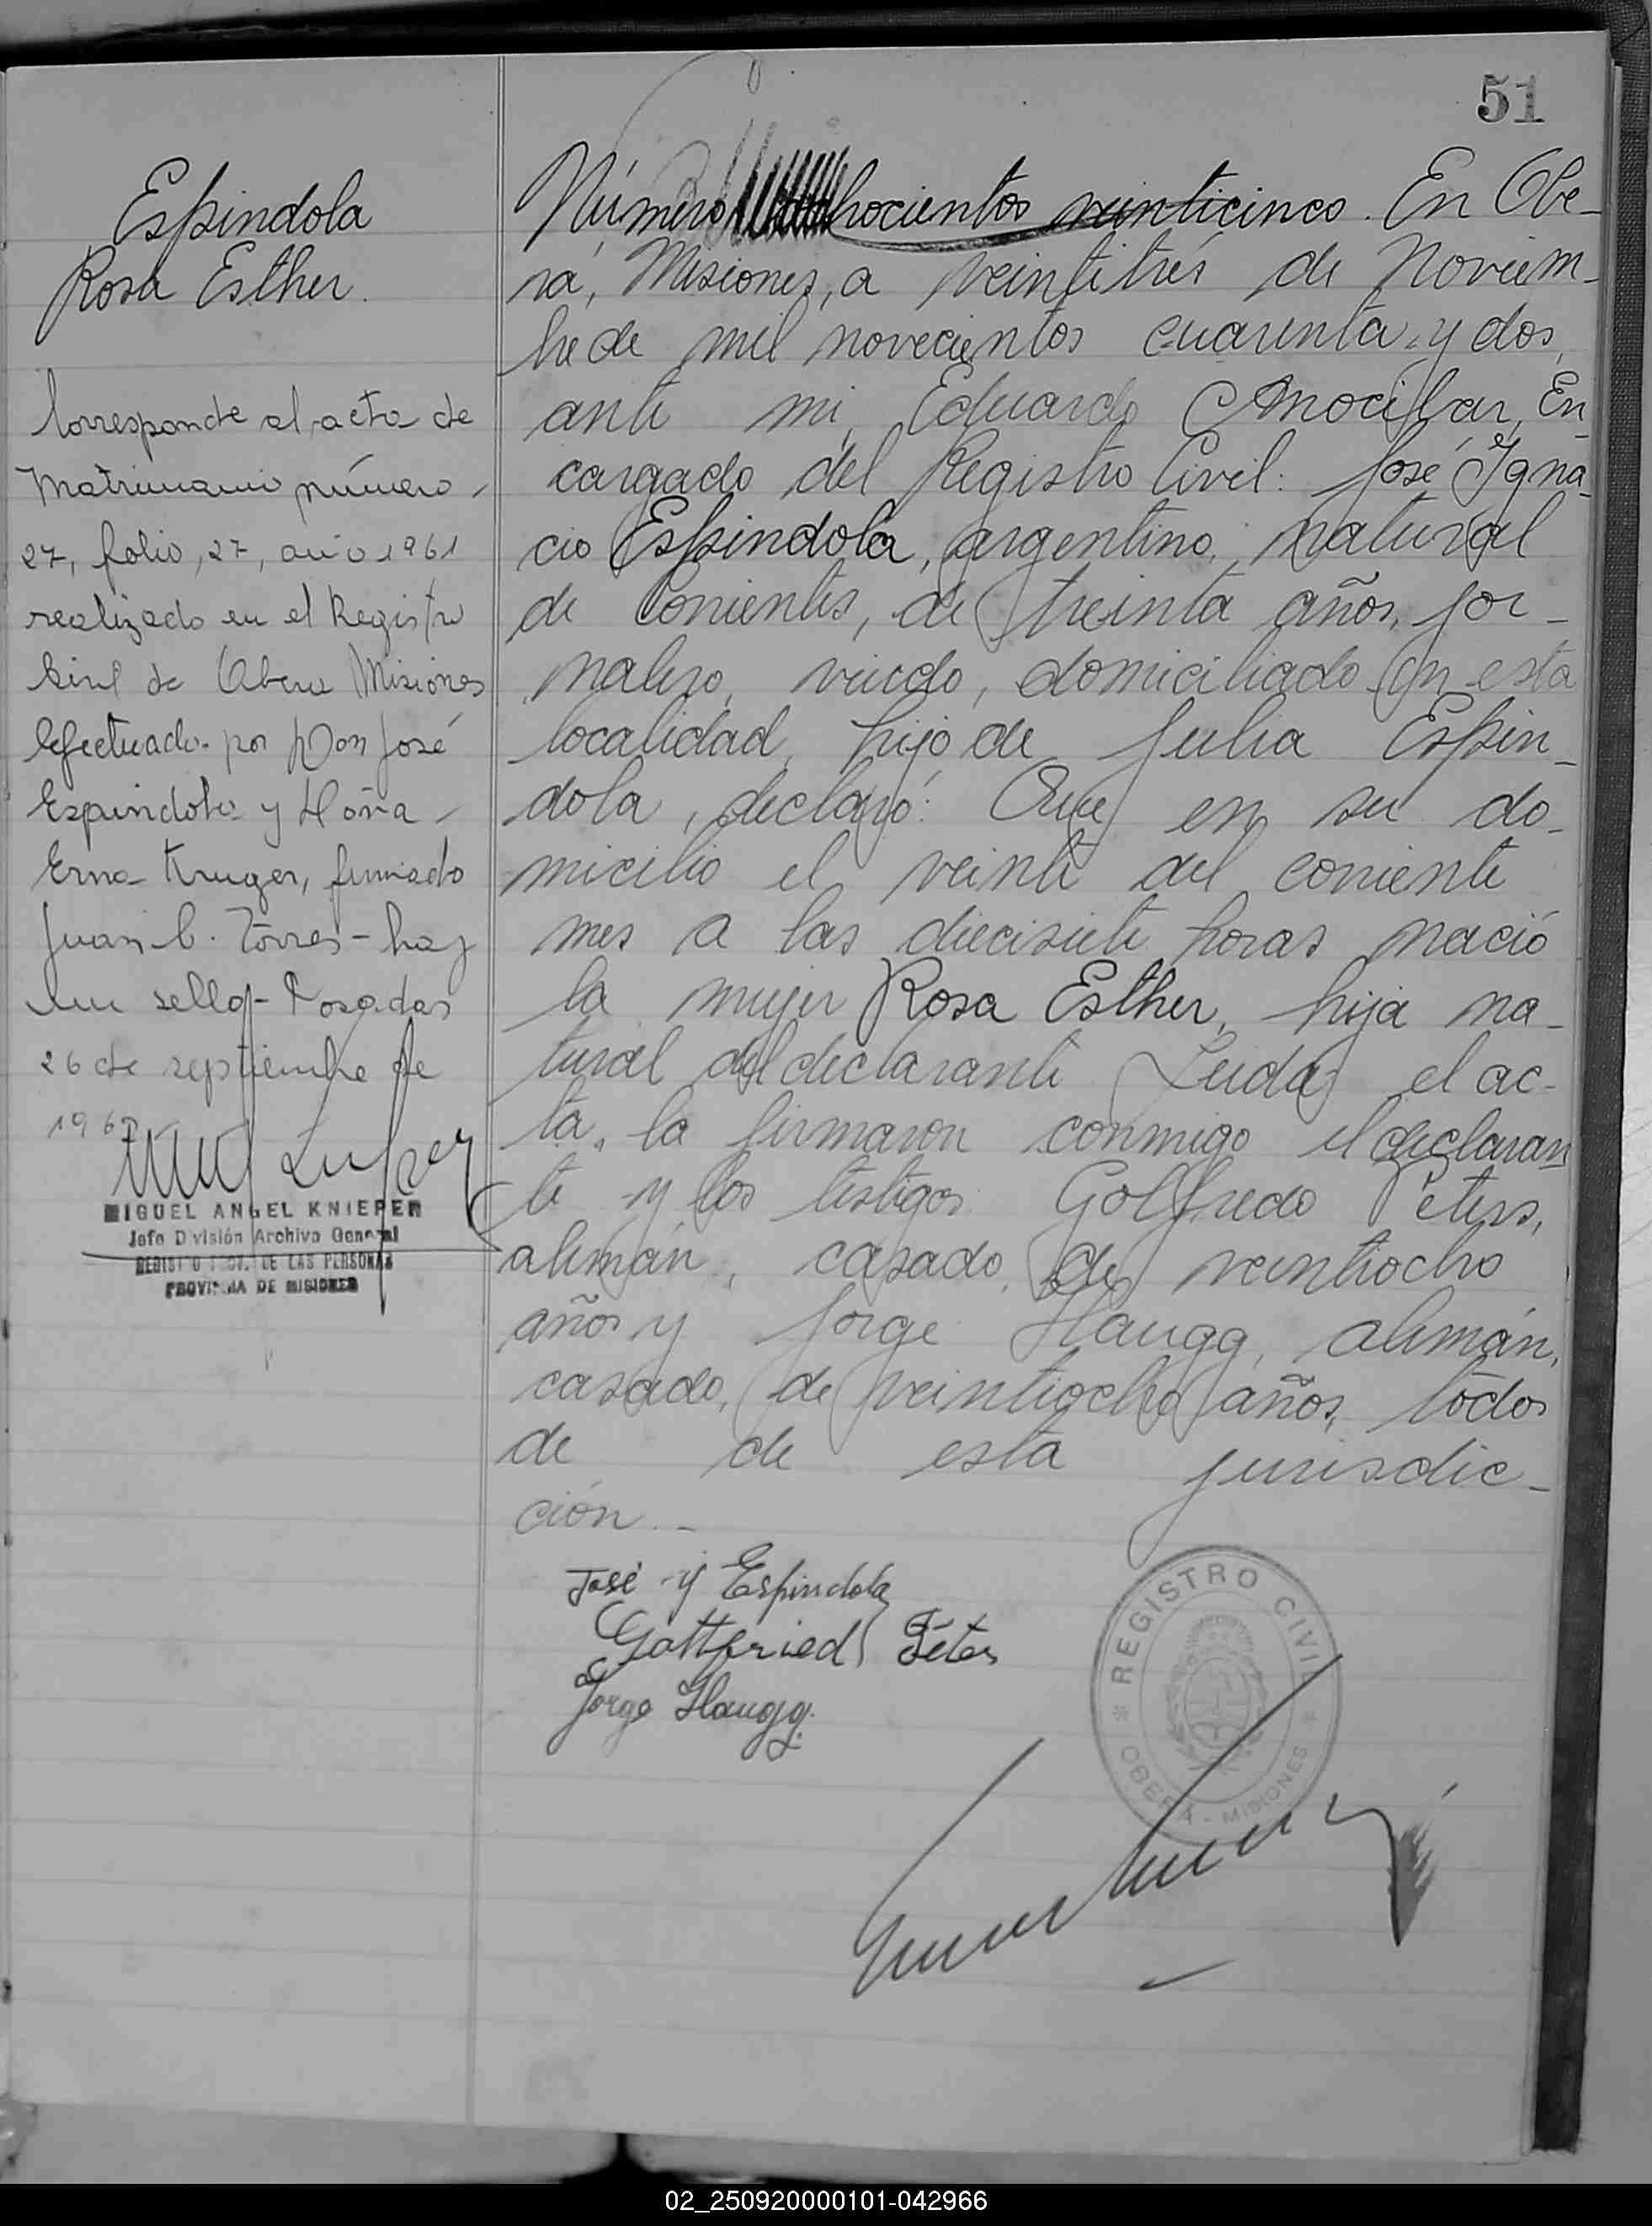 51
Espindola
Rosa Esther.
Corresponde al acta de
Matrimonio número
27, folio, 27, año 1961
realizado en el Registro
Civil de Obera Misiones
Efectuado por Don José
Espindola y Doña
Erna Kruger, firmado
Juan C. Torres - hay
un sello - Posadas
26 de septiembre de
196
MIGUEL ANGEL KNIEPER
Jefe División Archivo General
REGISTRO PROV. DE LAS PERSONAS
PROVINCIA DE MISIONES
Número hocientos veinticinco. En Obe-
rá, Misiones, a veintitrés de Noviem-
bre de mil novecientos cuarenta y dos,
ante mi, Eduardo Amocibar, En-
cargado del Registro Civil: José Igna-
cio Espindola, argentino, natural
de Corrientes, de treinta años, jor-
nalero, viudo, domiciliado en esta
localidad, hijo de Julia Espin-
dola, declaró: Que en su do-
micilio el veinte del corriente
mes a las diecisiete horas nació
la mujer Rosa Esther, hija na-
tural del declarante Leida el ac-
ta, la firmaron conmigo el declaran
te y los testigos Golfredo Peters,
alemán, casado, de veintiocho
años y Jorge Haugg, alemán,
casado, de veintiocho años, todos
de de esta jurisdic-
ción. -
José Y Espindola
Gottfried Péters
Jorge Haugg.
REGISTRO CIVIL
OBERÁ - MISIONES
02_250920000101-042966